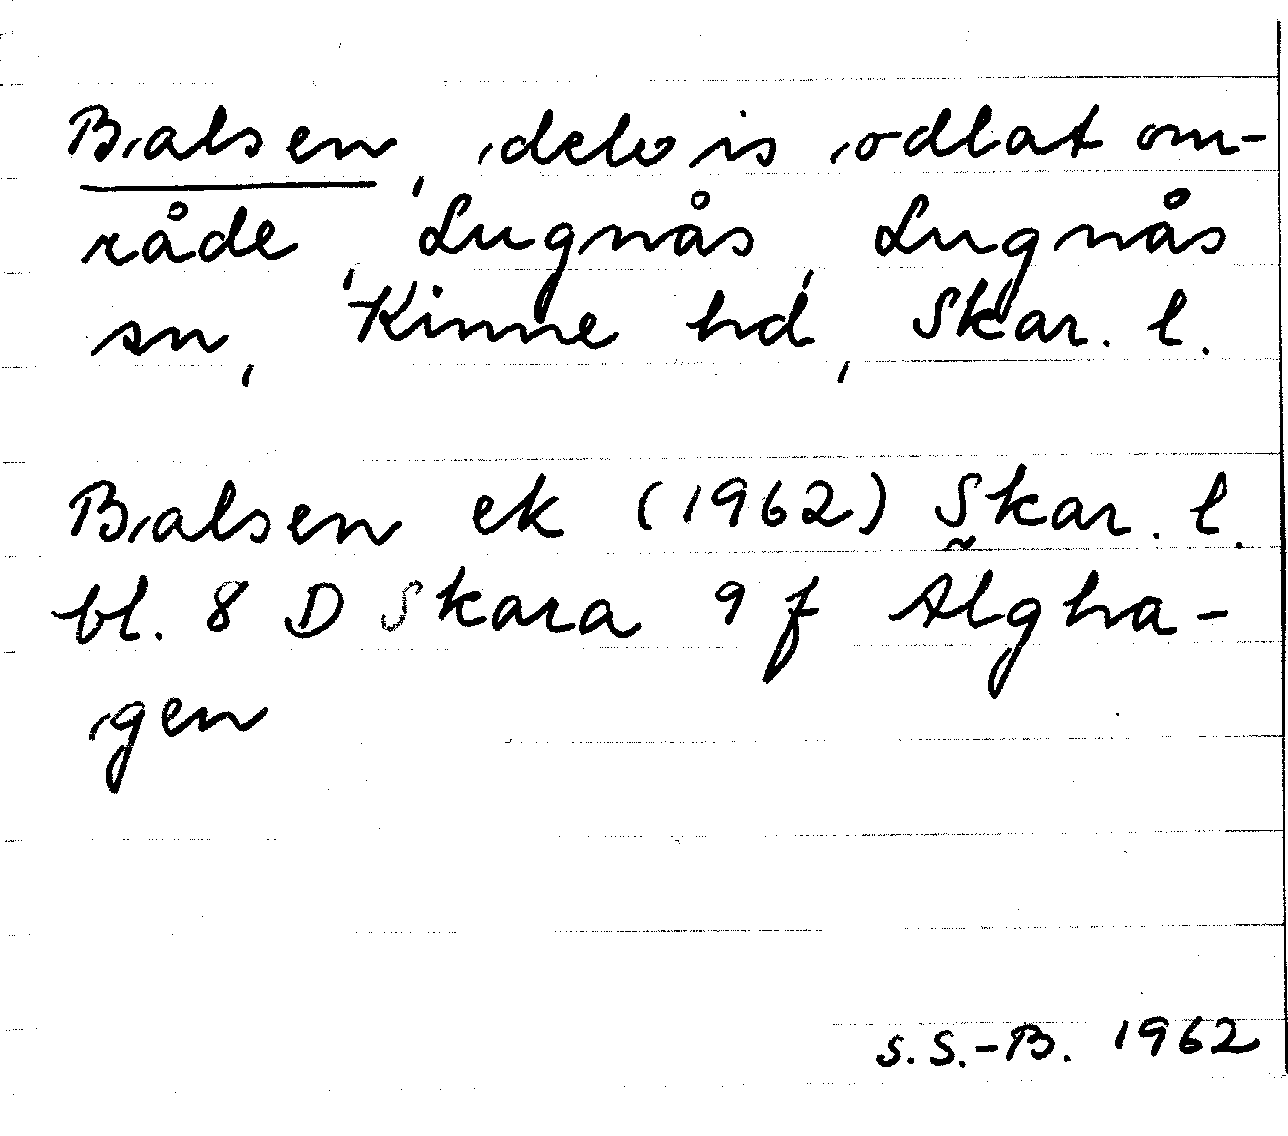 Balsen, delvis odlat om-
råde, Lugnås, Lugnås
sn, Kinne hd, Skar. l.
Balsen ek (1962) Skar. l.
bl. 8 D Skara 9 f Älgha-
gen
S. S.-B. 1962